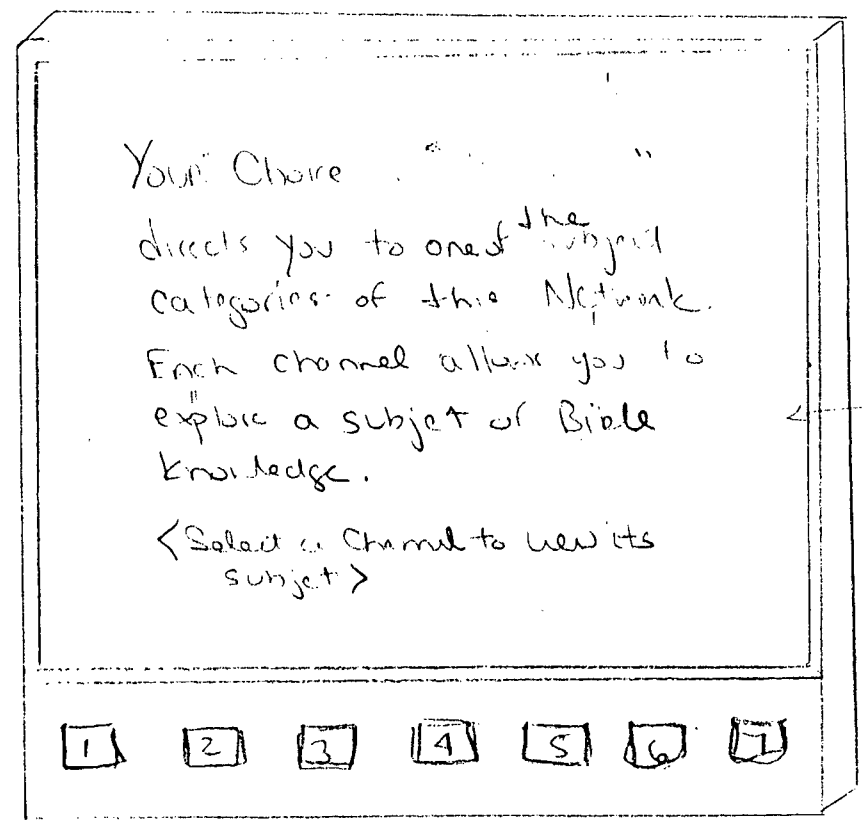 Your Choice " "
directs you to one of the subject
categories of this Network.
Each channel allows you to
explore a subjet of Bible
knowledge.
<Select a Channel to view its
subjet>
1 2 3 4 5 6 7